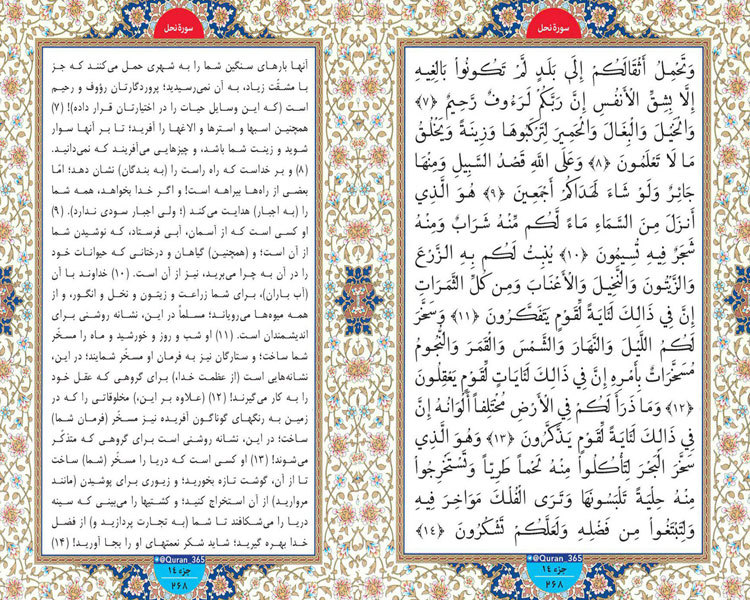 سورهٔ نحل
وَتَحْمِلُ أَثْقَالَكُمْ إِلَىٰ بَلَدٍ لَّمْ تَكُونُوا۟ بَالِغِيهِ
إِلَّا بِشِقِّ الْأَنفُسِ إِنَّ رَبَّكُمْ لَرَءُوفٌ رَّحِيمٌ ﴿٧﴾
وَالْخَيْلَ وَالْبِغَالَ وَالْحَمِيرَ لِتَرْكَبُوهَا وَزِينَةً وَيَخْلُقُ
مَا لَا تَعْلَمُونَ ﴿٨﴾ وَعَلَى اللَّهِ قَصْدُ السَّبِيلِ وَمِنْهَا
جَائِرٌ وَلَوْ شَاءَ لَهَدَاكُمْ أَجْمَعِينَ ﴿٩﴾ هُوَ الَّذِي
أَنزَلَ مِنَ السَّمَاءِ مَاءً لَّكُم مِّنْهُ شَرَابٌ وَمِنْهُ
شَجَرٌ فِيهِ تُسِيمُونَ ﴿١٠﴾ يُنبِتُ لَكُم بِهِ الزَّرْعَ
وَالزَّيْتُونَ وَالنَّخِيلَ وَالْأَعْنَابَ وَمِن كُلِّ الثَّمَرَاتِ
إِنَّ فِي ذَٰلِكَ لَآيَةً لِّقَوْمٍ يَتَفَكَّرُونَ ﴿١١﴾ وَسَخَّرَ
لَكُمُ اللَّيْلَ وَالنَّهَارَ وَالشَّمْسَ وَالْقَمَرَ وَالنُّجُومُ
مُسَخَّرَاتٌ بِأَمْرِهِ إِنَّ فِي ذَٰلِكَ لَآيَاتٍ لِّقَوْمٍ يَعْقِلُونَ
﴿١٢﴾ وَمَا ذَرَأَ لَكُمْ فِي الْأَرْضِ مُخْتَلِفًا أَلْوَانُهُ إِنَّ
فِي ذَٰلِكَ لَآيَةً لِّقَوْمٍ يَذَّكَّرُونَ ﴿١٣﴾ وَهُوَ الَّذِي
سَخَّرَ الْبَحْرَ لِتَأْكُلُوا۟ مِنْهُ لَحْمًا طَرِيًّا وَتَسْتَخْرِجُوا۟
مِنْهُ حِلْيَةً تَلْبَسُونَهَا وَتَرَى الْفُلْكَ مَوَاخِرَ فِيهِ
وَلِتَبْتَغُوا۟ مِن فَضْلِهِ وَلَعَلَّكُمْ تَشْكُرُونَ ﴿١٤﴾
@Quran_365
جزء ١٤
٢٦٨
سورهٔ نحل
آنها بارهای سنگین شما را به شهری حمل می‌کنند که جز
با مشقّت زیاد، به آن نمی‌رسیدید؛ پروردگارتان رؤوف و رحیم
است (که این وسایل حیات را در اختیارتان قرار داده)! (۷)
همچنین اسبها و استرها و الاغها را آفرید؛ تا بر آنها سوار
شوید و زینت شما باشد، و چیزهایی می‌آفریند که نمی‌دانید.
(۸) و بر خداست که راه راست را (به بندگان) نشان دهد؛ امّا
بعضی از راه‌ها بیراهه است! و اگر خدا بخواهد، همه شما
را (به اجبار) هدایت می‌کند (؛ ولی اجبار سودی ندارد). (۹)
او کسی است که از آسمان، آبی فرستاد، که نوشیدن شما
از آن است؛ و (همچنین) گیاهان و درختانی که حیوانات خود
را در آن به چرا می‌برید، نیز از آن است. (۱۰) خداوند با آن
(آب باران)، برای شما زراعت و زیتون و نخل و انگور، و از
همه میوه‌ها می‌رویاند؛ مسلماً در این، نشانه روشنی برای
اندیشمندان است. (۱۱) او شب و روز و خورشید و ماه را مسخّر
شما ساخت؛ و ستارگان نیز به فرمان او مسخّر شمایند؛ در این،
نشانه‌هایی است (از عظمت خدا،) برای گروهی که عقل خود
را به کار می‌گیرند! (۱۲) (علاوه بر این،) مخلوقاتی را که در
زمین به رنگهای گوناگون آفریده نیز مسخّر (فرمان شما)
ساخت؛ در این، نشانه روشنی است برای گروهی که متذکّر
می‌شوند! (۱۳) او کسی است که دریا را مسخّر (شما) ساخت
تا از آن، گوشت تازه بخورید؛ و زیوری برای پوشیدن (مانند
مروارید) از آن استخراج کنید؛ و کشتیها را می‌بینی که سینه
دریا را می‌شکافند تا شما (به تجارت پردازید و) از فضل
خدا بهره گیرید؛ شاید شکر نعمتهای او را بجا آورید! (۱۴)
@Quran_365
جزء ١٤
٢٦٨